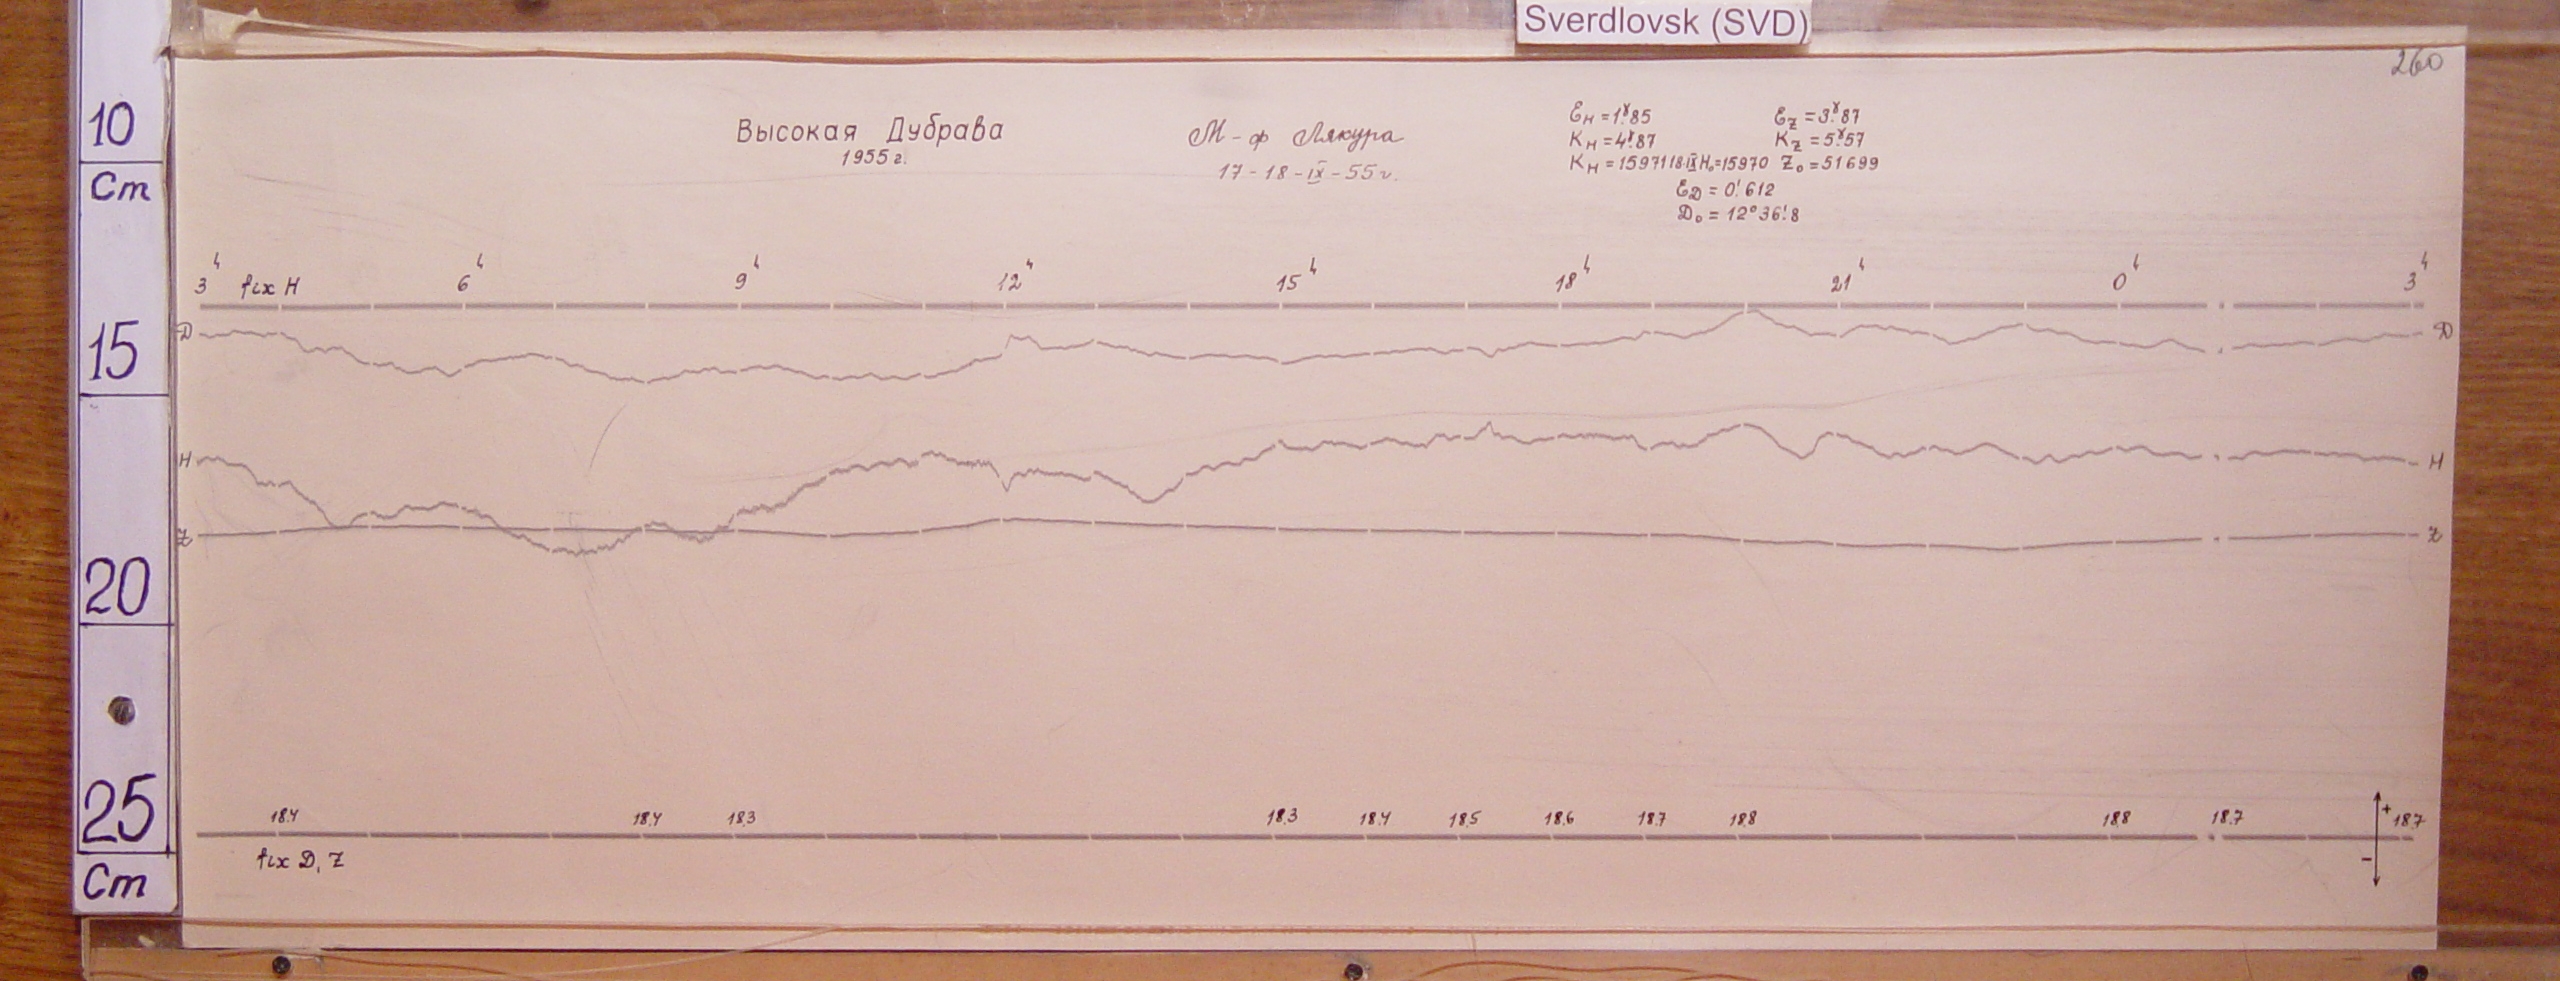 Sverdlovsk (SVD)
260
10
Cm
15
20
25
Cm
Высокая Дубрава
1955 г.
М-ф Лякура
17-18-IX-55 г.
ε_H = 1.ˠ85 ε_Z = 3.ˠ87
K_H = 4.ˠ87 K_Z = 5.ˠ57
K_H = 15971 18.IX H₀=15970 Z₀ = 51699
ε_D = 0.'612
D₀ = 12°36.'8
3ʰ 6ʰ 9ʰ 12ʰ 15ʰ 18ʰ 21ʰ 0ʰ 3ʰ
fix H
D D
H H
Z Z
18.4 18.4 18.3 18.3 18.4 18.5 18.6 18.7 18.8 18.8 18.7 18.7
+
-
fix D, Z